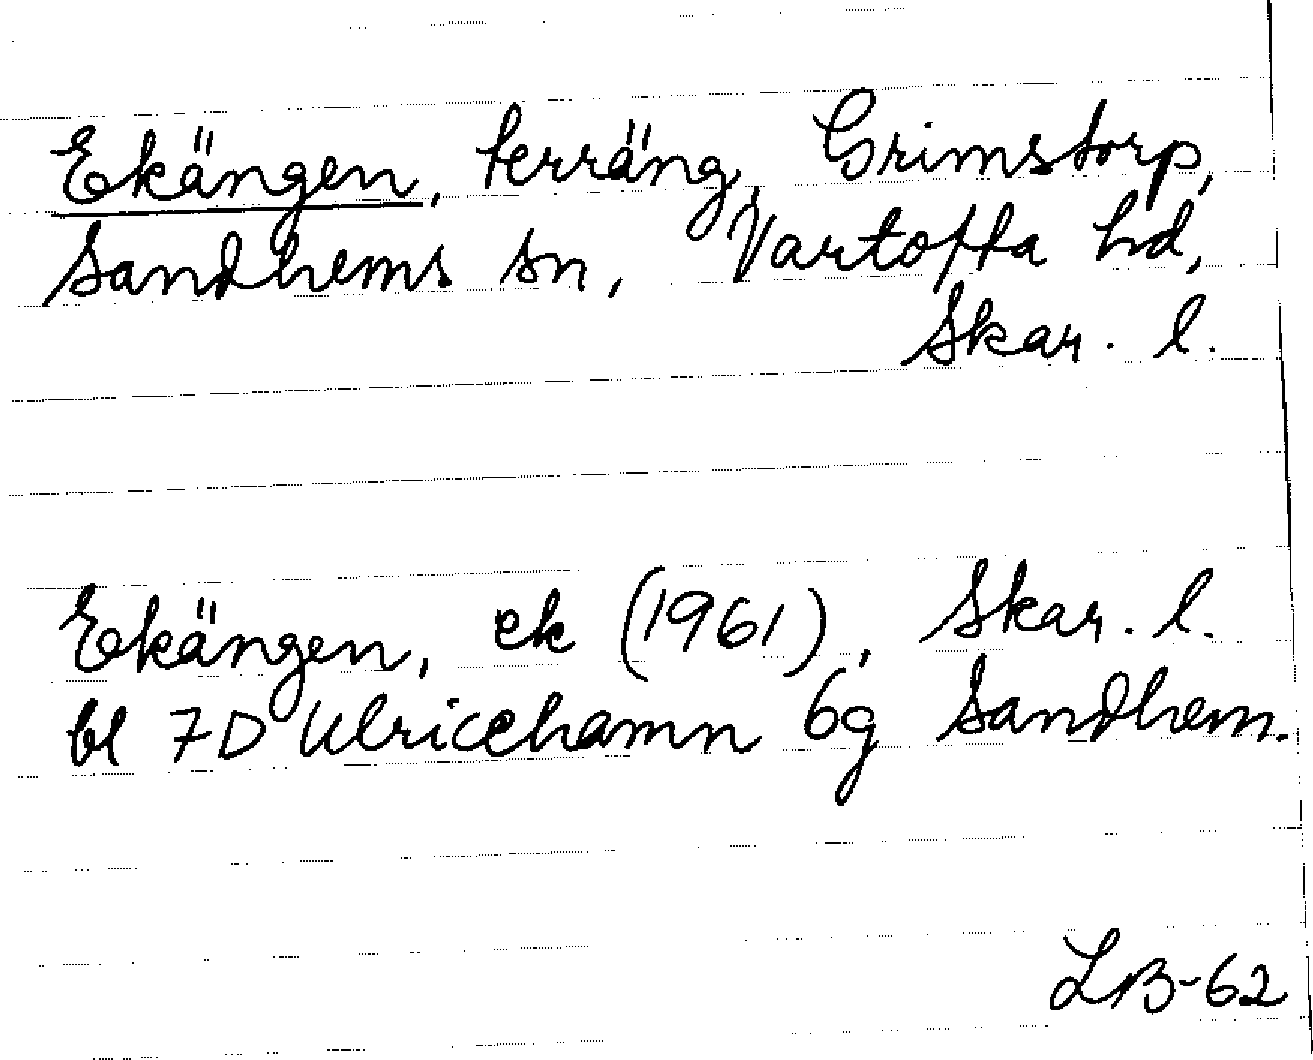 Ekängen, terräng, Grimstorp,
Sandhems sn, Vartofta hd,
Skar. l.
Ekängen, ek (1961), Skar. l.
bl 7D Ulricehamn 6g Sandhem.
LB-62